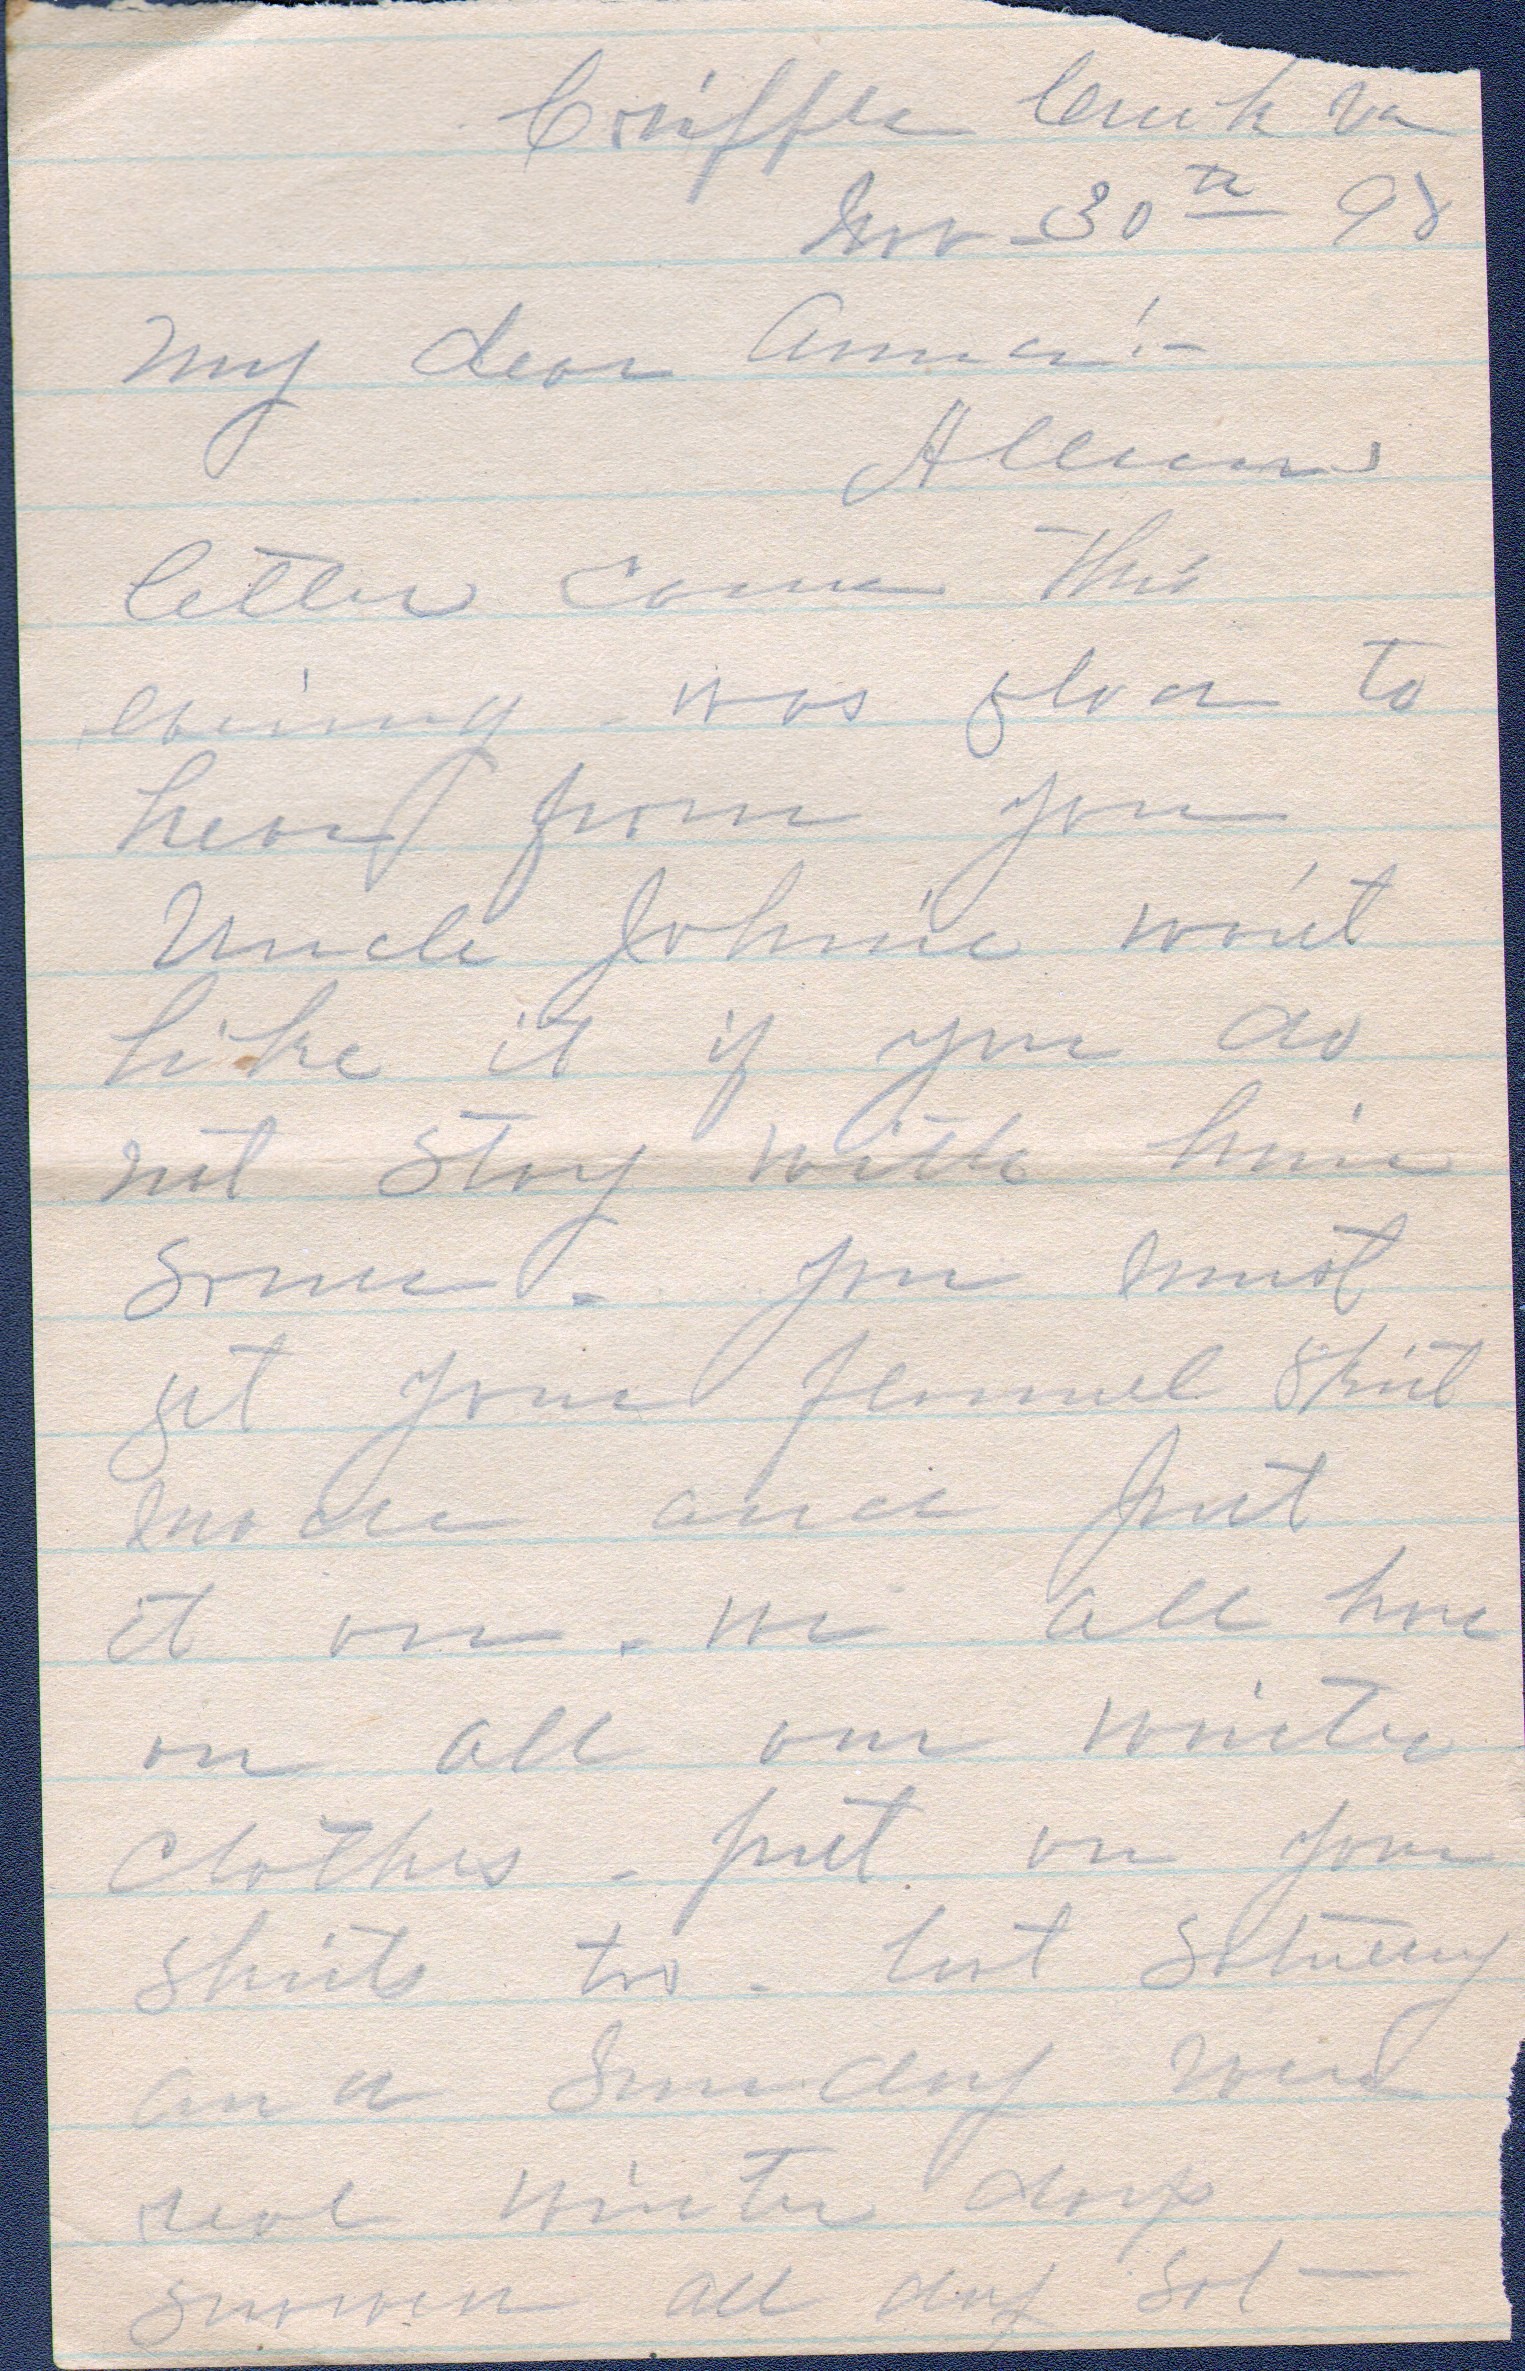 Cripple Creek Va
Nov - 30th 98
My dear Anna:-
Allens
letter came this
evening - was glad to
hear from you
Uncle Johnie won't
like it if you do
not stay with him
some - you must
get your flannel skirt
made and put
it on - we all have
on all our winter
clothes - put on your
shirts too - last Saturday
and Sunday was
real winter days
snowed all day Sat -